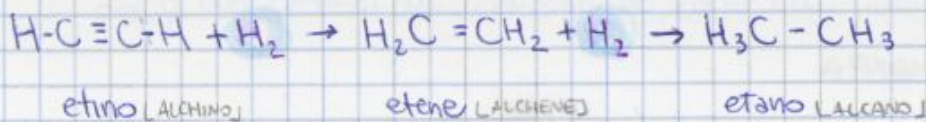 H-C≡C-H + H₂ → H₂C=CH₂ + H₂ → H₃C-CH₃
etino [ALCHINO] etene [ALCHENE] etano [ALCANO]